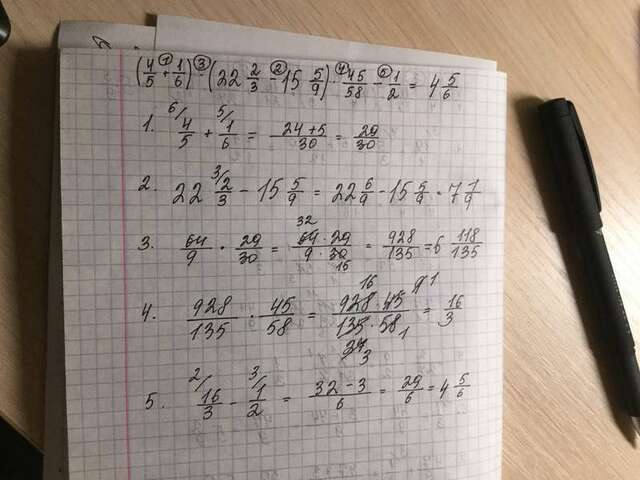 (4/5 + 1/6) · (22 2/3 - 15 5/9) · 45/58 - 1/2 = 4 5/6
1 3 2 4 5
1. 6/ 4/5 + 5/ 1/6 = 24+5/30 = 29/30
2. 22 3/ 2/3 - 15 5/9 = 22 6/9 - 15 5/9 = 7 1/9
3. 64/9 · 29/30 = 32 64 · 29/9 · 30 = 928/135 = 6 118/135
4. 928/135 · 45/58 = 16 928 · 45 1/135 · 58 1 = 16/3
3
5. 2/ 16/3 - 3/ 1/2 = 32-3/6 = 29/6 = 4 5/6